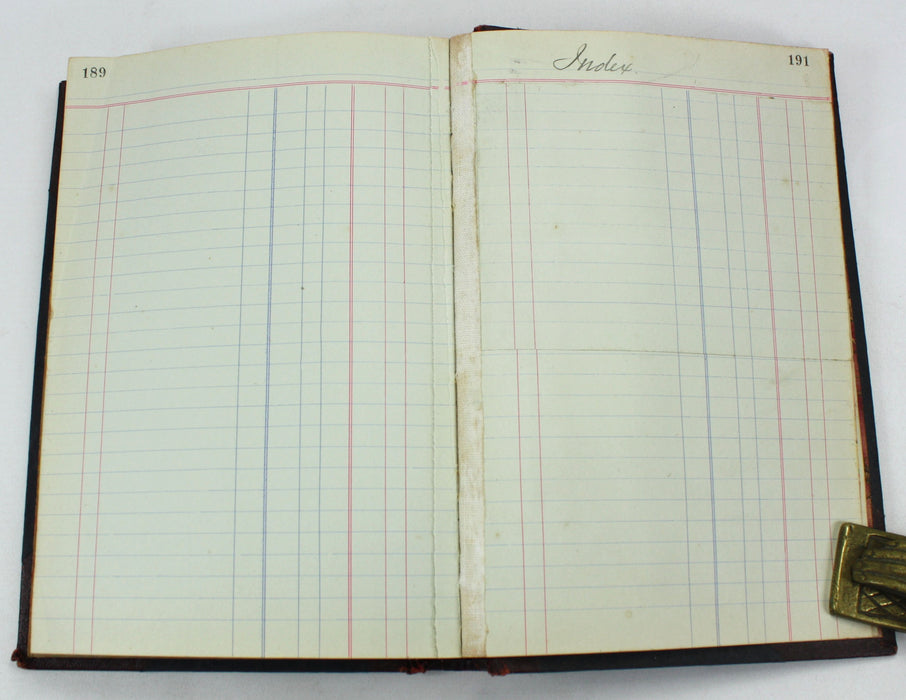 189
Index
191